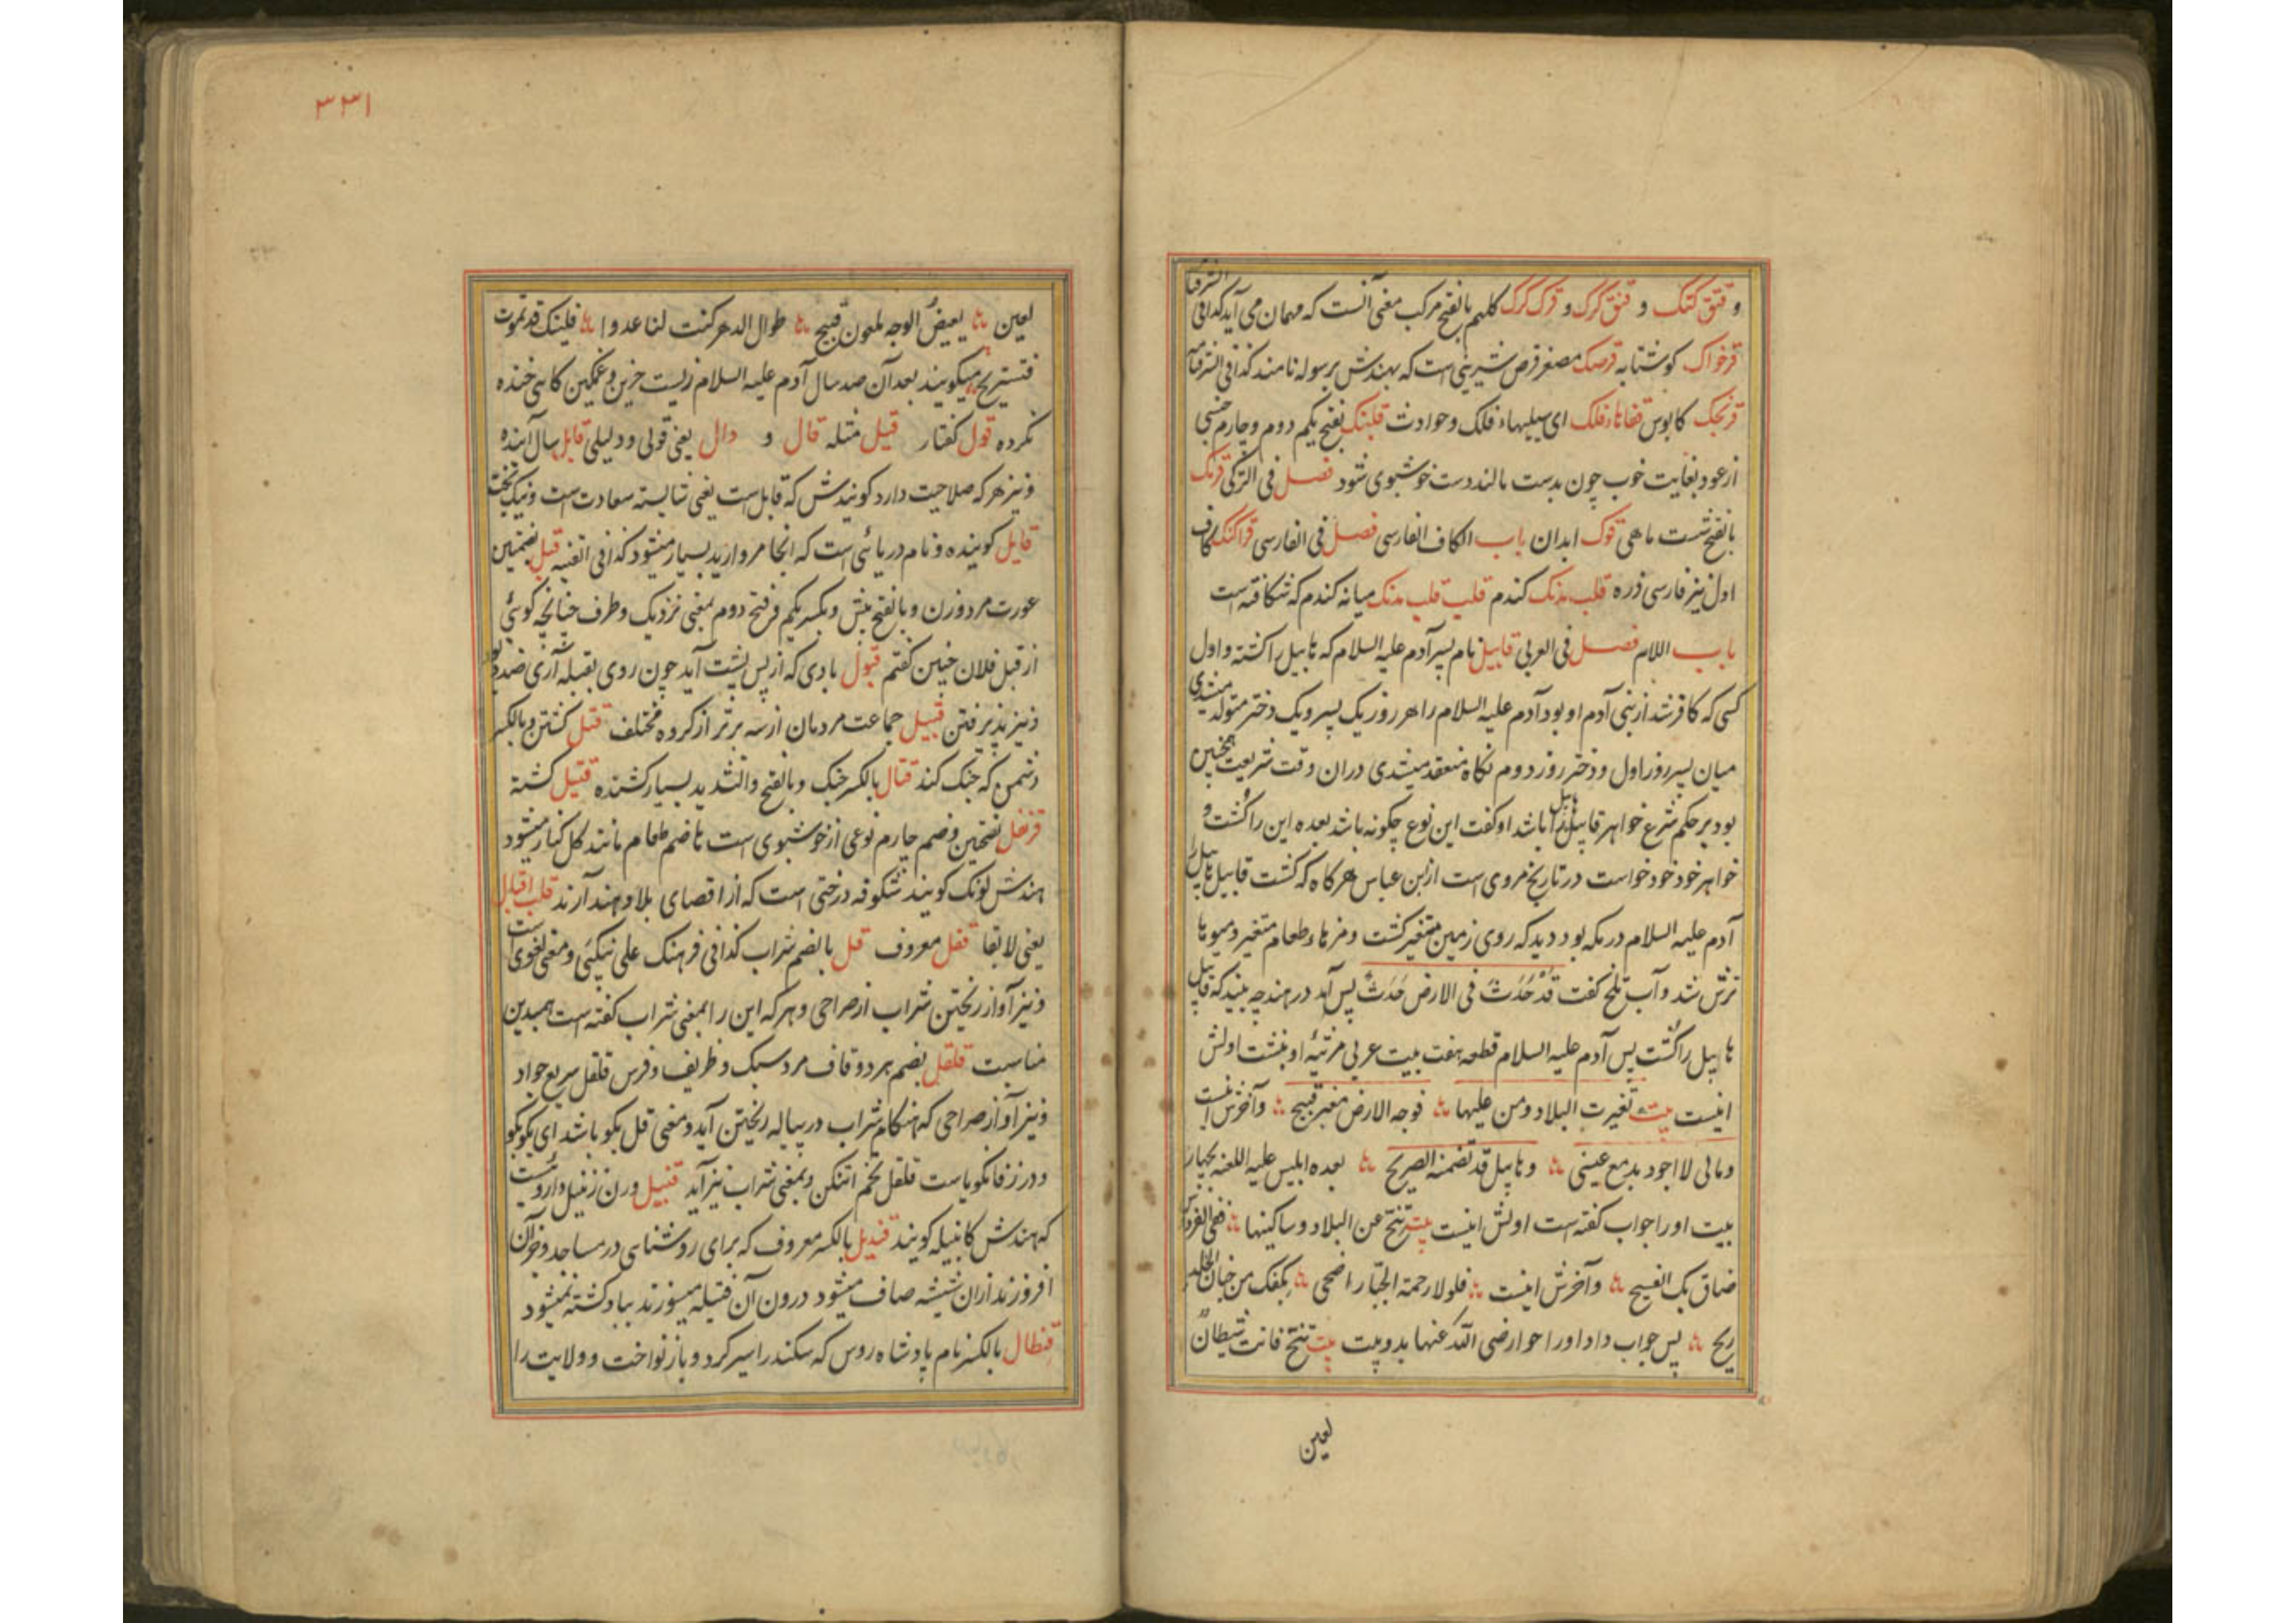 و قنق کتک و قنق کرک و قرک کرک کلهم بالفتح مرکب معنی آنست که مهمان می آید کذا فی الشرفنامه
قرخواک کوشتابه قرصک مصغر قرص شیرینی است که بهندش برسوله نامند کذا فی الشرفنامه
قرنجک کابوس قفاهاء فلک ای سیلیهاء فلک و حوادث قلنبک بفتح یکم دوم و چارم جنسی
از عود بغایت خوب چون بدست مالند دست خوشبوی شود فصل فی الترکی قرنک
بالفتح شست ماهی قوک ابدان باب الکاف الفارسی فصل فی الفارسی قراکنک کاف
اول نیز فارسی ذره قلب مدنک کندم قلیت قلب مدنک میانه کندم که شکافته است
باب اللام فصل فی العربی قابیل نام پسر آدم علیه السلام که هابیل را کشته و اول
کسی که کافر شد از بنی آدم او بود آدم علیه السلام را هر روز یک پسر و یک دختر متولد میشدی
میان پسر روز اول و دختر روز دوم نکاه منعقد میشدی دران وقت شریعت همچنین
بود بر حکم شرع خواهر قابیل هابیل را باشد او کفت این نوع چکونه باشد بعده این را کشت و
خواهر خود خود خواست در تاریخ مروی است از ابن عباس هرکاه که کشت قابیل هابیل را
آدم علیه السلام در مکه بود دید که روی زمین متغیر کشت و مزها و طعام متغیر و میوها
ترش شد و آب تلخ کفت قَدْ حَدَثَ فی الارض حَدَثٌ پس آمد در هند چه بیند که قابیل
هابیل را کشت پس آدم علیه السلام قطعه هفت بیت عربی مرثیۀ او بنشت اولش
اینست بیت تغیرت البلاد ومن علیها فوجه الارض مغبر قبیح و آخرش اینست
ومالی لا اجود بدمع عینی وهابیل قد تضمنه الضریح بعده ابلیس علیه اللعنه بچهار
بیت او را جواب کفته است اولش اینست بیت تنح عن البلاد وساکنیها ففی الفردوس
ضاق بک الفسیح و آخرش اینست فلولا رحمة الجبّار اضحی بکفک من جنان الخلد
ریح پس جواب داد او را حوا رضی الله عنها بدو بیت بیت تنح فانت شیطان
لعین
۳۳۱
لعین بغیض الوجه ملعون قبیح طوال الدهر کنت لنا عدوا فلیتک قد تموت
فتستریح میکویند بعد آن صد سال آدم علیه السلام زیست حزین و غمکین کاهی خنده
نکرده قول کفتار قیل مثله قال و دال یعنی قولی و دلیلی قابل سال آینده
و نیز هر که صلاحیت دارد کویندش که قابل است یعنی شایسته سعادت است و نیک بخت
قایل کوینده و نام دریائی است که انجا مروارید بسیار میشود کذا فی القنیه قبل بضمتین
عورت مرد و زن و بالفتح پیش و بکسر یکم و فتح دوم بمعنی نزدیک و طرف چنانچه کوئی
از قبل فلان چنین کفتم قبول بادی که از پس پشت آید چون روی بقبله آری ضد دبور
و نیز پذیرفتن قبیل جماعت مردمان از سه برتر از کروه مختلف قتل کشتن و بالکسر
دشمن که جنک کند قتال بالکسر جنک و بالفتح والتشدید بسیار کشنده قتیل کشته
قرنفل بفتحین و ضم چارم نوعی از خوشبوی است هاضم طعام مانند کل کنار میشود
بهندش لونک کویند شکوفه درختی است که از اقصای بلاد هند آرند قلب اقبال
یعنی لابقا قفل معروف قل بالضم شراب کذا فی فرهنک علی نیکپی و معنی لغوی است
و نیز آواز ریختن شراب از صراحی و هر که این را بمعنی شراب کفته است همبدین
مناسبت قلقل بضم هر دو قاف مرد سبک و ظریف و فرس قلقل سریع جواد
و نیز آواز صراحی که هنکام شراب در پیاله ریختن آید و معنی قل بکو باشد ای بکو بکو
و در زفانکویاست قلقل تخم و بمعنی شراب نیز آید قنبیل وزن زنبیل داروئست
که هندش کانبیله کویند قندیل بالکسر معروف که برای روشنایی در مساجد و جز آن
افروزند ازان شیشه صاف میشود درون آن فتیله میسوزند بباد کشته نمیشود
قنطال بالکسر نام پادشاه روس که سکندر اسیر کرد و باز نواخت و ولایت را